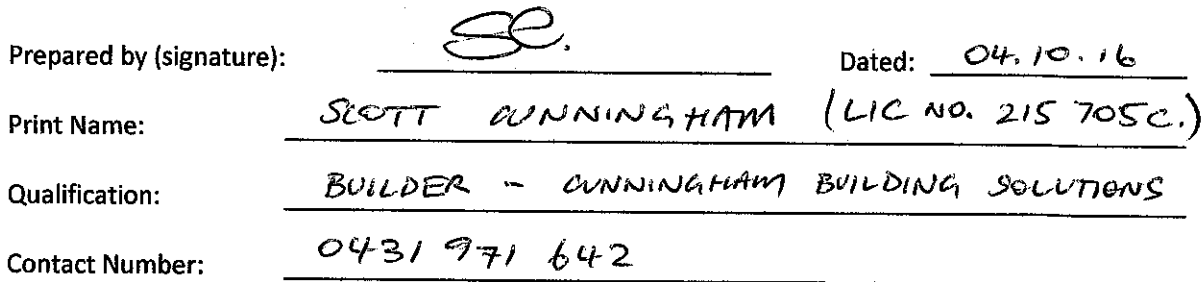 Prepared by (signature): SC. Dated: 04.10.16
Print Name: SCOTT CUNNINGHAM (LIC NO. 215 705C.)
Qualification: BUILDER - CUNNINGHAM BUILDING SOLUTIONS
Contact Number: 0431 971 642